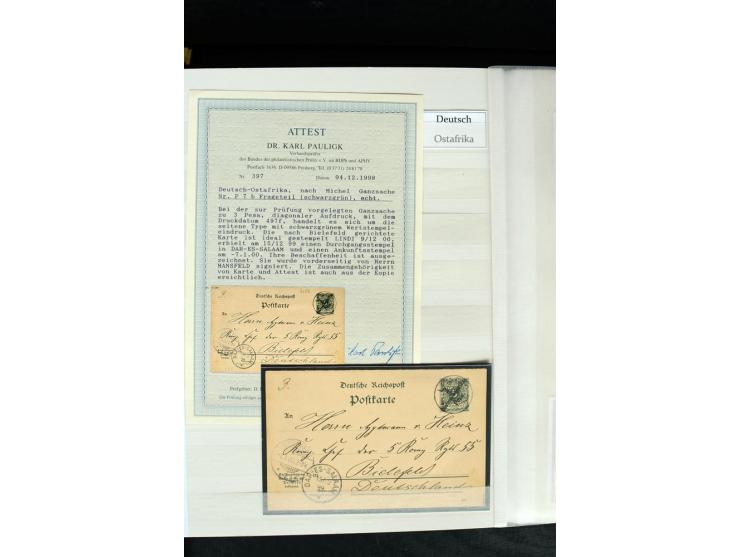 ATTEST
DR. KARL PAULIGK
Verbandsprüfer
des Bundes der philatelistischen Prüfer e.V. im BDPh und APHV
Nr. 397 Datum 04.12.1998
Deutsch-Ostafrika, nach Michel Ganzsache
Nr. P 7 b Frageteil (schwarzgrün), echt.
Bei der zur Prüfung vorgelegten Ganzsache
zu 3 Pesa, diagonaler Aufdruck, mit dem
Druckdatum 497f, handelt es sich um die
seltene Type mit schwarzgrünem Wertstempel-
eindruck. Die nach Bielefeld gerichtete
Karte ist ideal gestempelt LINDI 9/12 00,
erhielt am 15/12 99 einen Durchgangsstempel
in DAR-ES-SALAAM und einen Ankunftsstempel
am -7.1.00. Ihre Beschaffenheit ist ausge-
zeichnet. Sie wurde vorderseitig von Herrn
MANSFELD signiert. Die Zusammenhörigkeit
von Karte und Attest ist auch aus der Kopie
ersichtlich.
Deutsche Reichspost
Postkarte
An
Herrn v. Heinz
der 5 55
Bielefeld
Deutschland
Deutsch
Ostafrika
Deutsche Reichspost
Postkarte
An
Herrn v. Heinz
der 5 55
Bielefeld
Deutschland
DAR-ES-SALAAM